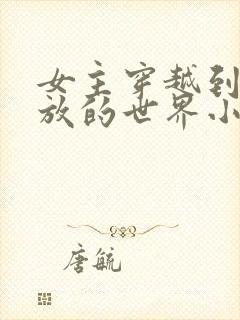 女主穿越到
放的世界小
唐毓